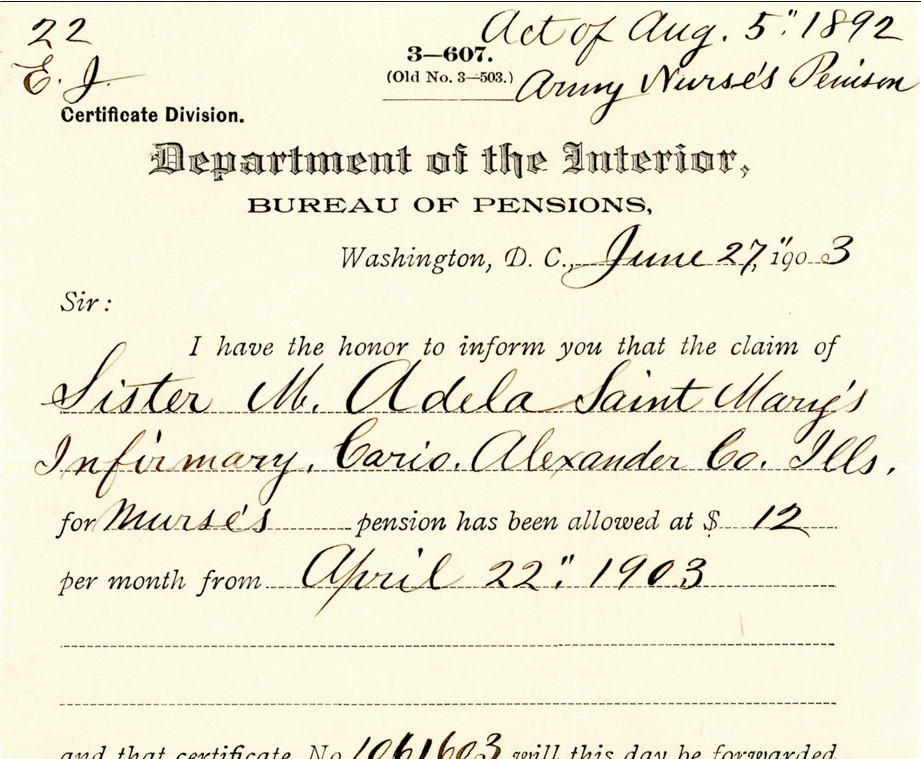 22
Act of Aug. 5." 1892
3—607.
E. J.
(Old No. 3—503.)
Army Nurse's Penison
Certificate Division.
Department of the Interior,
BUREAU OF PENSIONS,
Washington, D. C., June 27," 1903
Sir:
I have the honor to inform you that the claim of
Sister M. Adela Saint Mary's
Infirmary. Cario. Alexander Co. Ills.
for Nurse's pension has been allowed at $ 12
per month from April 22." 1903
and that certificate No 1061603 will this day be forwarded